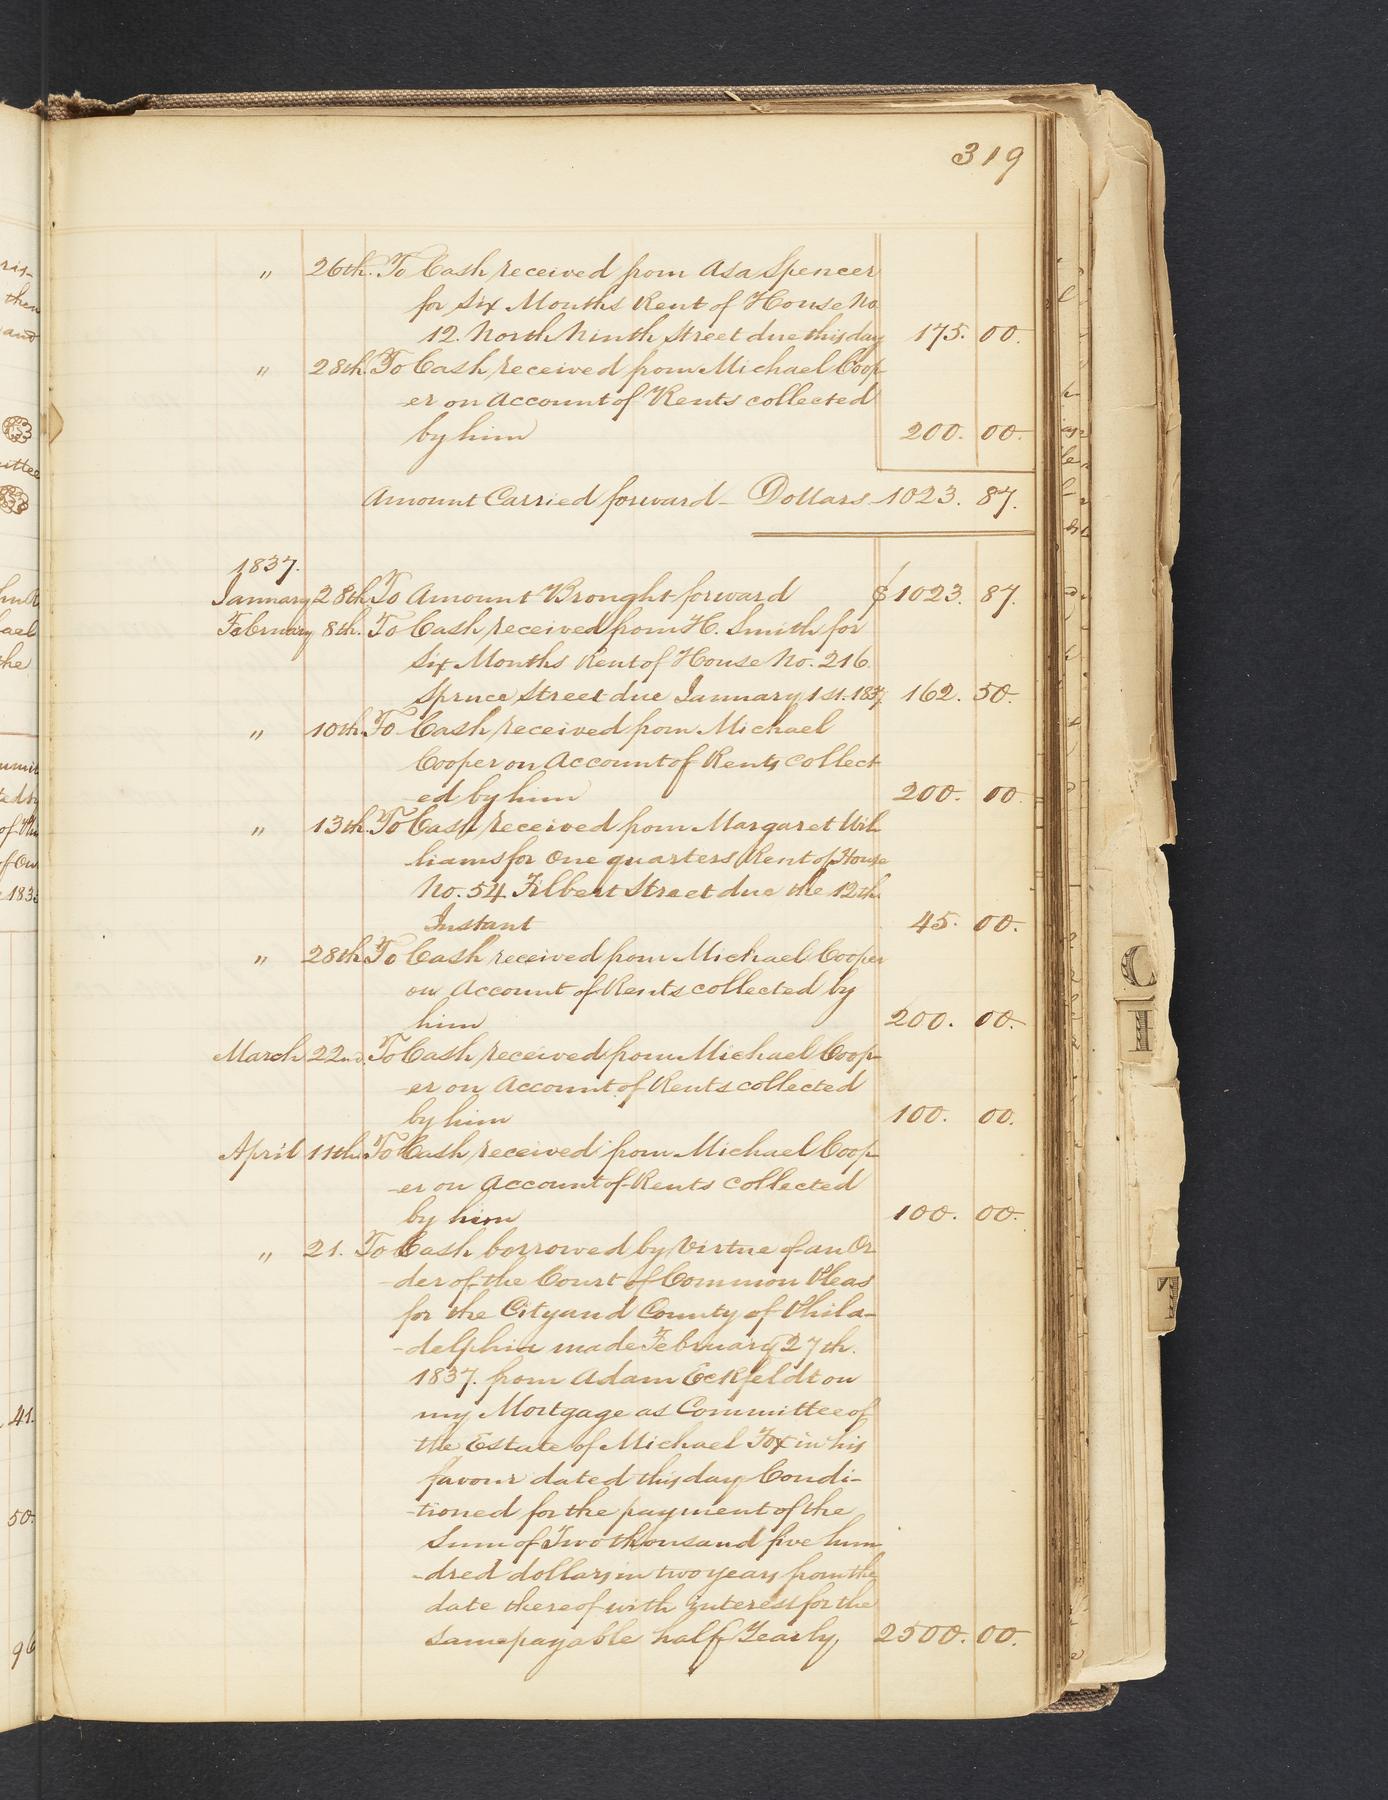 319
" 26th. To Cash received from Asa Spencer
for Six Months Rent of House No
12. North Ninth Street due this day 175. 00.
" 28th. To Cash received from Michael Coop-
-er on Account of Rents collected
by him 200. 00.
Amount Carried forward - Dollars 1023. 87.
1837.
January 28th To Amount Brought forward $1023. 87.
February 8th. To Cash received from H. Smith for
Six Months Rent of House No. 216.
Spruce Street due January 1st. 1837. 162. 50.
" 10th. To Cash received from Michael
Cooper on Account of Rents collect
ed by him 200. 00
" 13th. To Cash received from Margaret Wil
liams for One quarters Rent of House
No. 54 Filbert Street due the 12th.
Instant 45. 00.
" 28th To Cash received from Michael Cooper
on Account of Rents collected by
him 200. 00.
March 22nd. To Cash received from Michael Coop-
-er on Account of Rents collected
by him 100. 00.
April 11th. To Cash received from Michael Coop-
-er on Account of Rents collected
by him 100. 00.
" 21. To Cash borrowed by Virtue of an Or
-der of the Court of Common Pleas
for the City and County of Phila-
-delphia made February 27th.
1837. from Adam Eckfeldt on
my Mortgage as Committee of
the Estate of Michael Fox in his
favour dated this day Condi-
-tioned for the payment of the
Sum of Two thousand five hun
-dred dollars in two years from the
date thereof with interest for the
same payable half Yearly, 2500. 00.